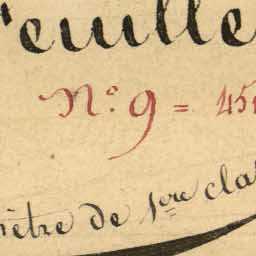 Feuille
N.º 9 = 451
ètre de 1ere cla